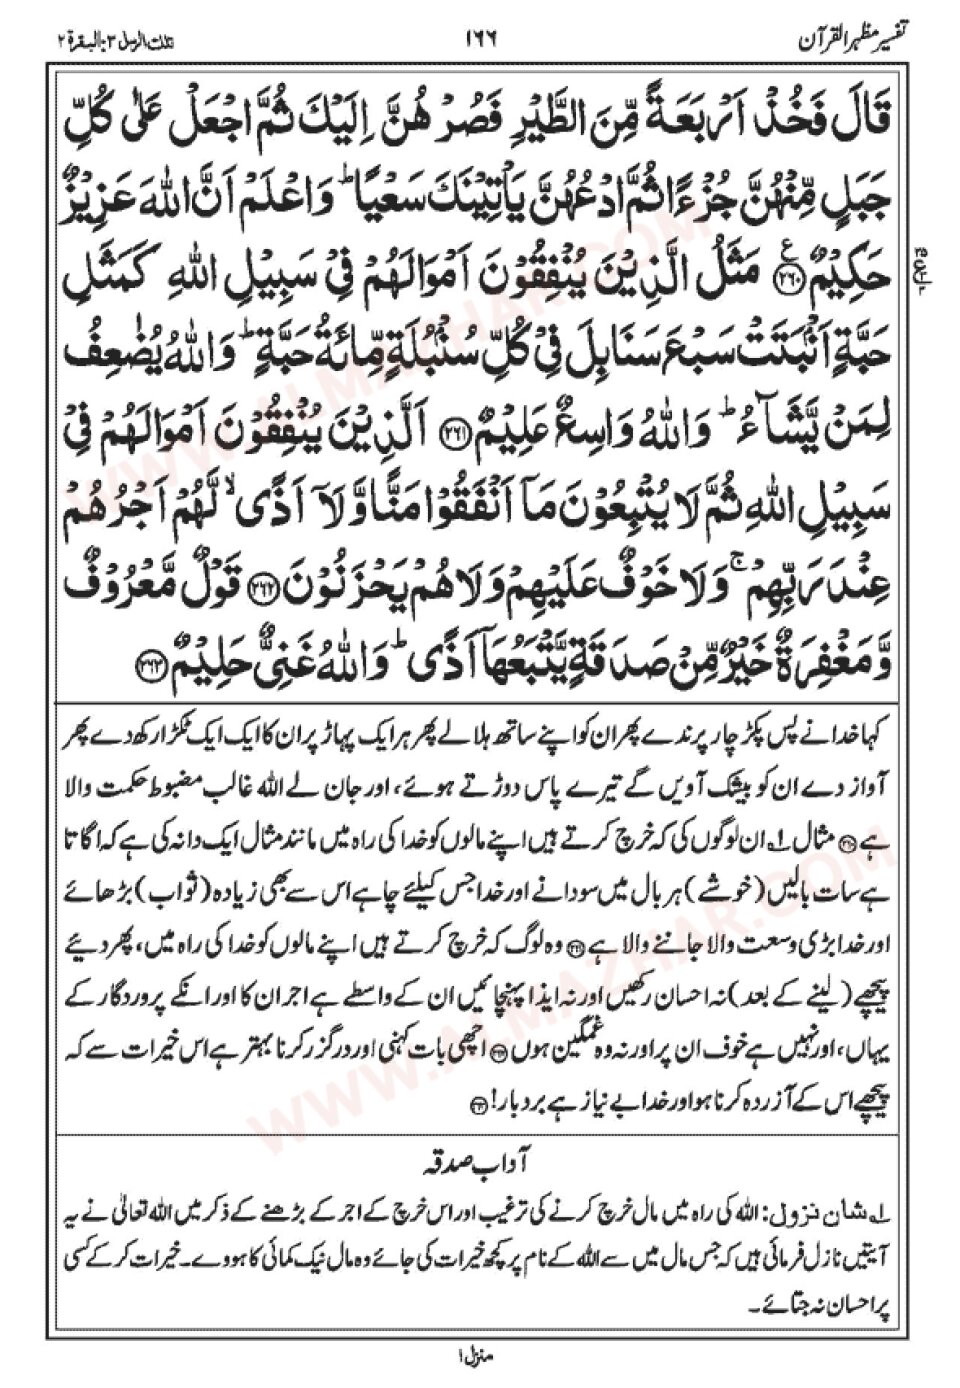 تفسیر مظہر القرآن ۱۶۶ تلک الرسل ۳: البقرۃ ۲
قَالَ فَخُذْ اَرْبَعَةً مِّنَ الطَّيْرِ فَصُرْهُنَّ اِلَيْكَ ثُمَّ اجْعَلْ عَلٰى كُلِّ
جَبَلٍ مِّنْهُنَّ جُزْءًا ثُمَّ ادْعُهُنَّ يَاْتِيْنَكَ سَعْيًا ؕ وَاعْلَمْ اَنَّ اللّٰهَ عَزِيْزٌ
حَكِيْمٌ ﴿۲۶۰﴾ ع مَثَلُ الَّذِيْنَ يُنْفِقُوْنَ اَمْوَالَهُمْ فِيْ سَبِيْلِ اللّٰهِ كَمَثَلِ
حَبَّةٍ اَنْۢبَتَتْ سَبْعَ سَنَابِلَ فِيْ كُلِّ سُنْۢبُلَةٍ مِّائَةُ حَبَّةٍ ؕ وَاللّٰهُ يُضٰعِفُ
لِمَنْ يَّشَآءُ ؕ وَاللّٰهُ وَاسِعٌ عَلِيْمٌ ﴿۲۶۱﴾ اَلَّذِيْنَ يُنْفِقُوْنَ اَمْوَالَهُمْ فِيْ
سَبِيْلِ اللّٰهِ ثُمَّ لَا يُتْبِعُوْنَ مَآ اَنْفَقُوْا مَنًّا وَّلَآ اَذًى ۙ لَّهُمْ اَجْرُهُمْ
عِنْدَ رَبِّهِمْ ۚ وَلَا خَوْفٌ عَلَيْهِمْ وَلَا هُمْ يَحْزَنُوْنَ ﴿۲۶۲﴾ قَوْلٌ مَّعْرُوْفٌ
وَّمَغْفِرَةٌ خَيْرٌ مِّنْ صَدَقَةٍ يَّتْبَعُهَآ اَذًى ؕ وَاللّٰهُ غَنِيٌّ حَلِيْمٌ ﴿۲۶۳﴾
کہا خدا نے پس پکڑ چار پرندے پھر ان کو اپنے ساتھ ہلا لے پھر ہر ایک پہاڑ پر ان کا ایک ایک ٹکڑا رکھ دے پھر
آواز دے ان کو بیشک آویں گے تیرے پاس دوڑتے ہوئے، اور جان لے اللہ غالب مضبوط حکمت والا
ہے ﴿۲۶۰﴾ مثال ۱؎ ان لوگوں کی کہ خرچ کرتے ہیں اپنے مالوں کو خدا کی راہ میں مانند مثال ایک دانہ کی ہے کہ اگاتا
ہے سات بالیں (خوشے) ہر بال میں سو دانے اور خدا جس کیلئے چاہے اس سے بھی زیادہ (ثواب) بڑھائے
اور خدا بڑی وسعت والا جاننے والا ہے ﴿۲۶۱﴾ وہ لوگ کہ خرچ کرتے ہیں اپنے مالوں کو خدا کی راہ میں، پھر دیئے
پیچھے (لینے کے بعد) نہ احسان رکھیں اور نہ ایذا پہنچائیں ان کے واسطے ہے اجر ان کا اور انکے پروردگار کے
یہاں، اور نہیں ہے خوف ان پر اور نہ وہ غمگین ہوں ﴿۲۶۲﴾ اچھی بات کہنی اور درگزر کرنا بہتر ہے اس خیرات سے کہ
پیچھے اس کے آزردہ کرنا ہو اور خدا بے نیاز ہے بردبار! ﴿۲۶۳﴾
آداب صدقہ
۱؎ شان نزول: اللہ کی راہ میں مال خرچ کرنے کی ترغیب اور اس خرچ کے اجر کے بڑھنے کے ذکر میں اللہ تعالیٰ نے یہ
آیتیں نازل فرمائی ہیں کہ جس مال میں سے اللہ کے نام پر کچھ خیرات کی جائے وہ مال نیک کمائی کا ہووے۔ خیرات کر کے کسی
پر احسان نہ جتائے۔
منزل ۱
WWW.ALMAZHAR.COM
WWW.ALMAZHAR.COM